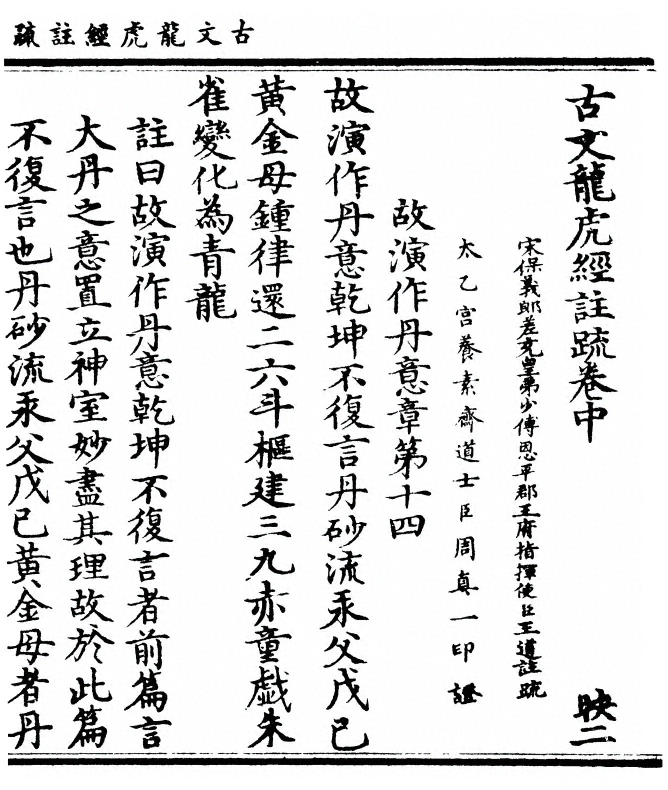 古文龍虎經註疏
古文龍虎經註疏卷中 映二
宋保義郎差充皇弟少傅恩平郡王府指揮使臣王道註疏
太乙宮養素齋道士臣周真一印證
故演作丹意章第十四
故演作丹意乾坤不復言丹砂流汞父戊己
黃金母鍾律還二六斗樞建三九赤童戲朱
雀變化為青龍
註曰故演作丹意乾坤不復言者前篇言
大丹之意置立神室妙盡其理故於此篇
不復言也丹砂流汞父戊己黃金母者丹